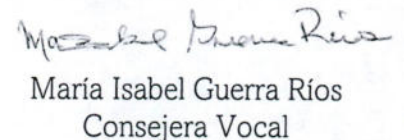 María Isabel Guerra Ríos
Consejera Vocal